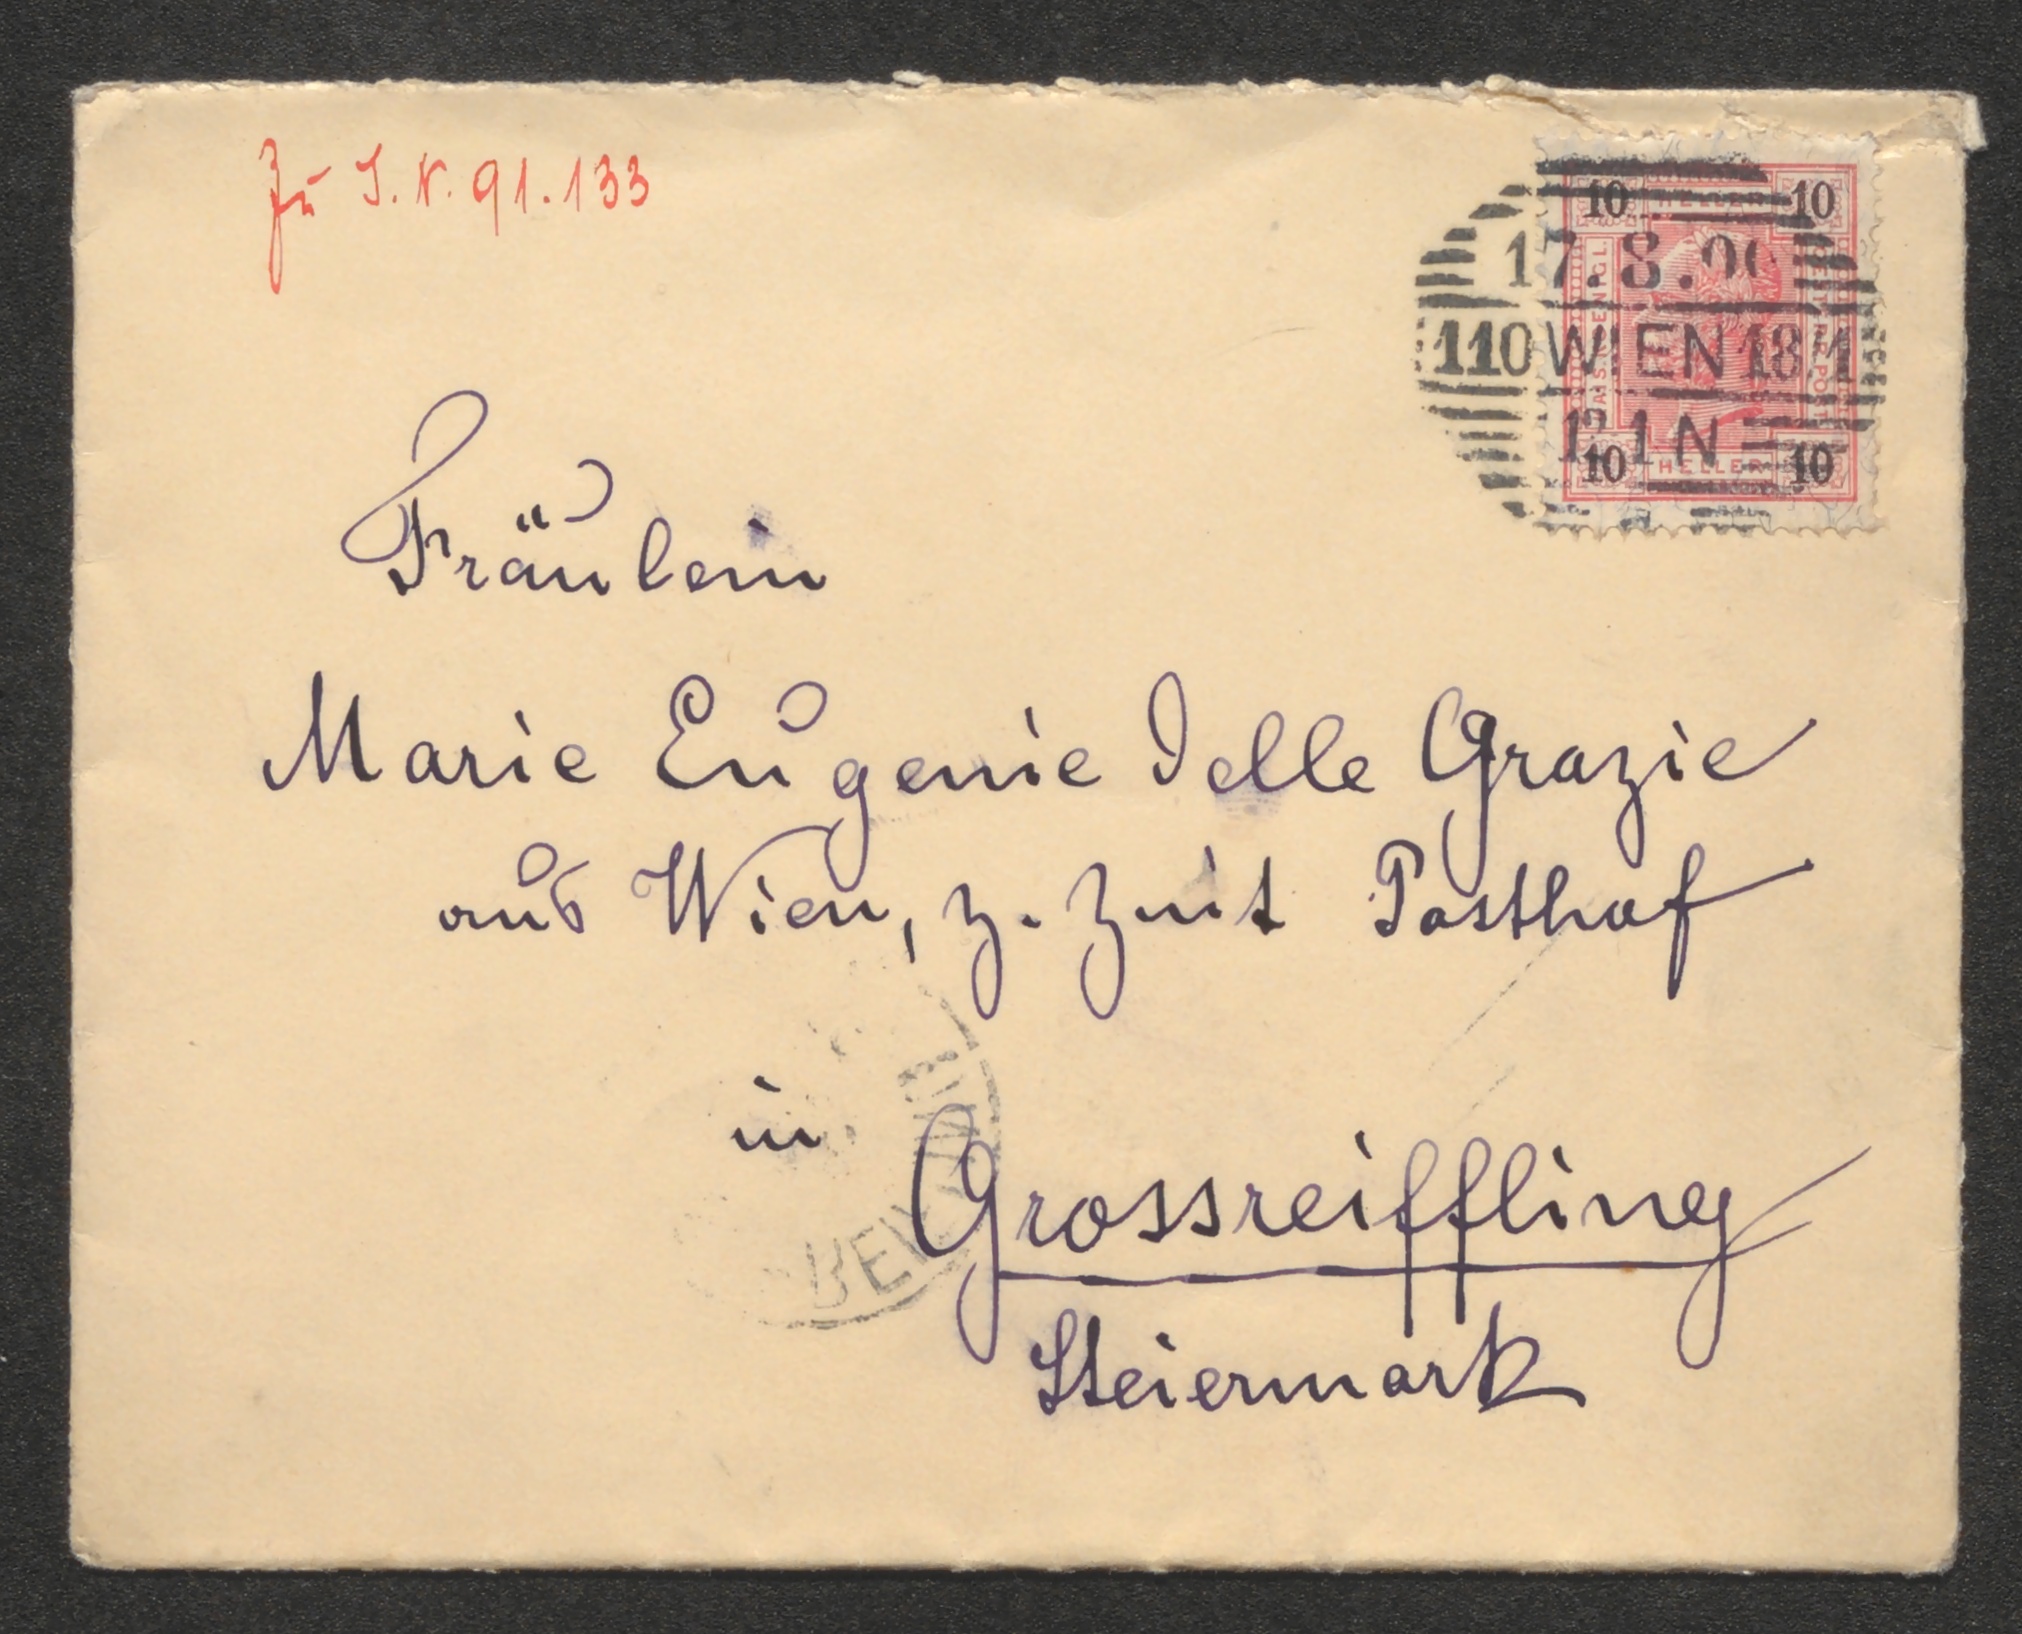 Zu I.N. 91.133
10 HELLER 10
17.8.00
110 WIEN 18/1
12-1N
10 HELLER 10
Fräulein
Marie Eugenie delle Grazie
aus Wien, z. Zeit Posthof
in Grossreiffling
Steiermark